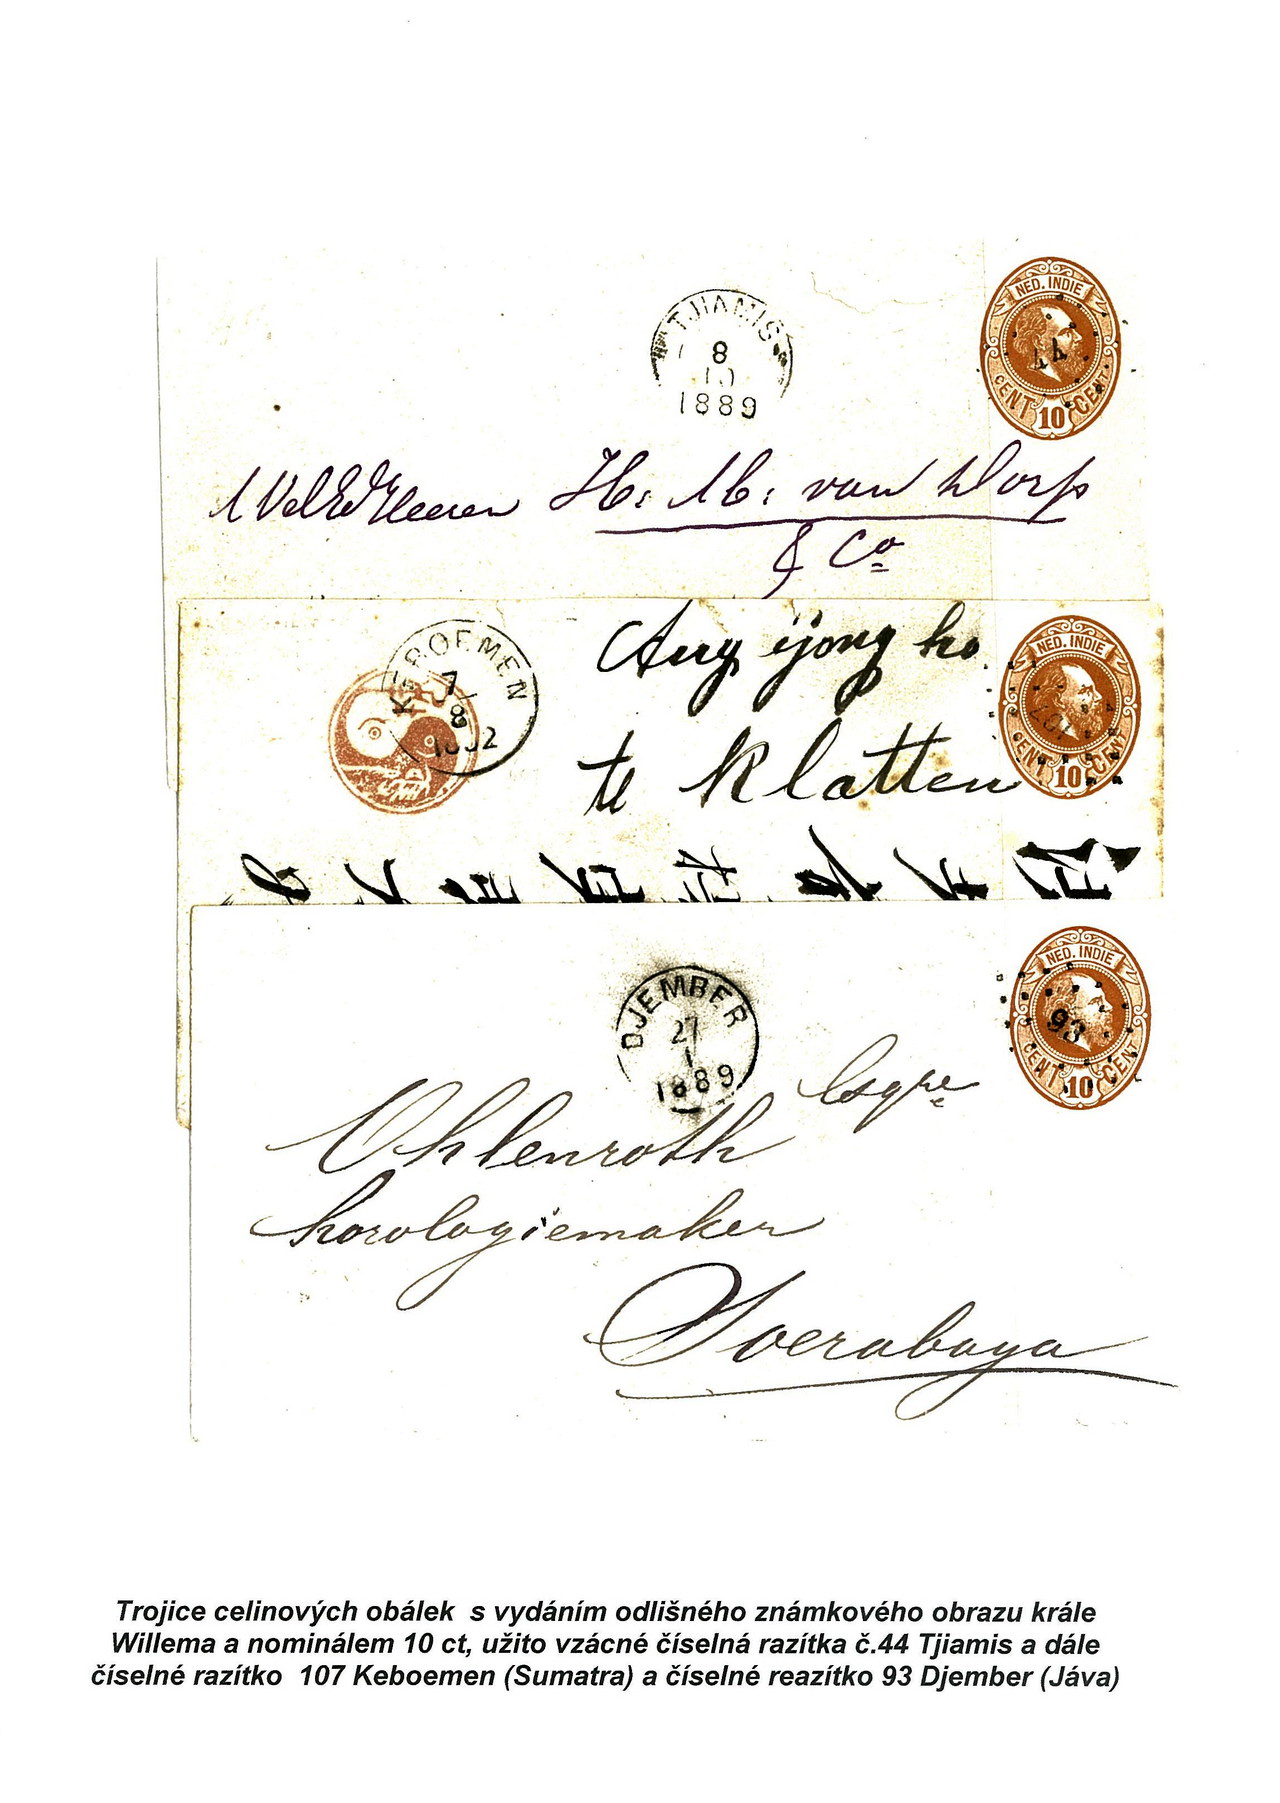 NED. INDIE
44
CENT 10 CENT
TJIAMIS
8
10
1889
WelEdHeeren H: M: van Dorp
& Co
KEBOEMEN
7/
8
1892
Ang ijong ho
te Klatten
NED. INDIE
107
CENT 10 CENT
DJEMBER
27
1
1889
NED. INDIE
93
CENT 10 CENT
Esqre
Ohlenroth
horologiemaker
Soerabaya
Trojice celinových obálek s vydáním odlišného známkového obrazu krále
Willema a nominálem 10 ct, užito vzácné číselná razítka č.44 Tjiamis a dále
číselné razítko 107 Keboemen (Sumatra) a číselné reazítko 93 Djember (Jáva)